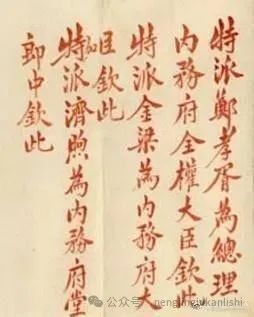 特派鄭孝胥為總理
內務府全權大臣欽此
特派金梁為內務府大
臣欽此
特派濟煦為內務府堂
郎中欽此
公众号